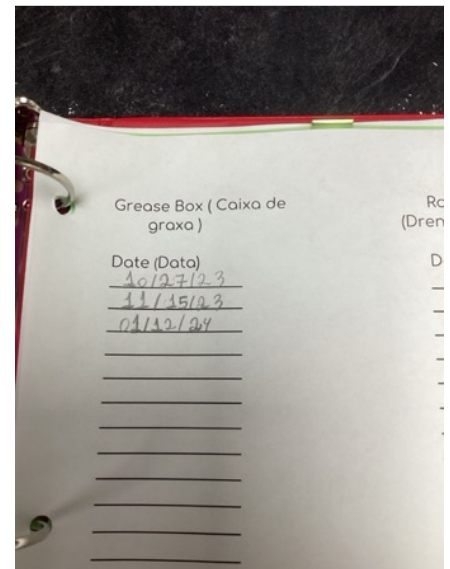 Grease Box ( Caixa de
graxa )
Date (Data)
10/27/23
11/15/23
01/12/24
(Dren